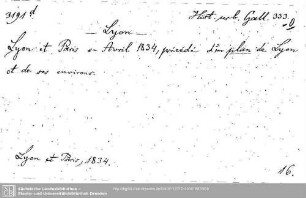 3191 d
Hist. urb. Gall. 333
— Lyon —
Lyon et Paris en Avril 1834, précédé d'un plan de Lyon
et de ses environs.
Lyon et Paris, 1834.
16.
Sächsische Landesbibliothek -
Staats- und Universitätsbibliothek Dresden